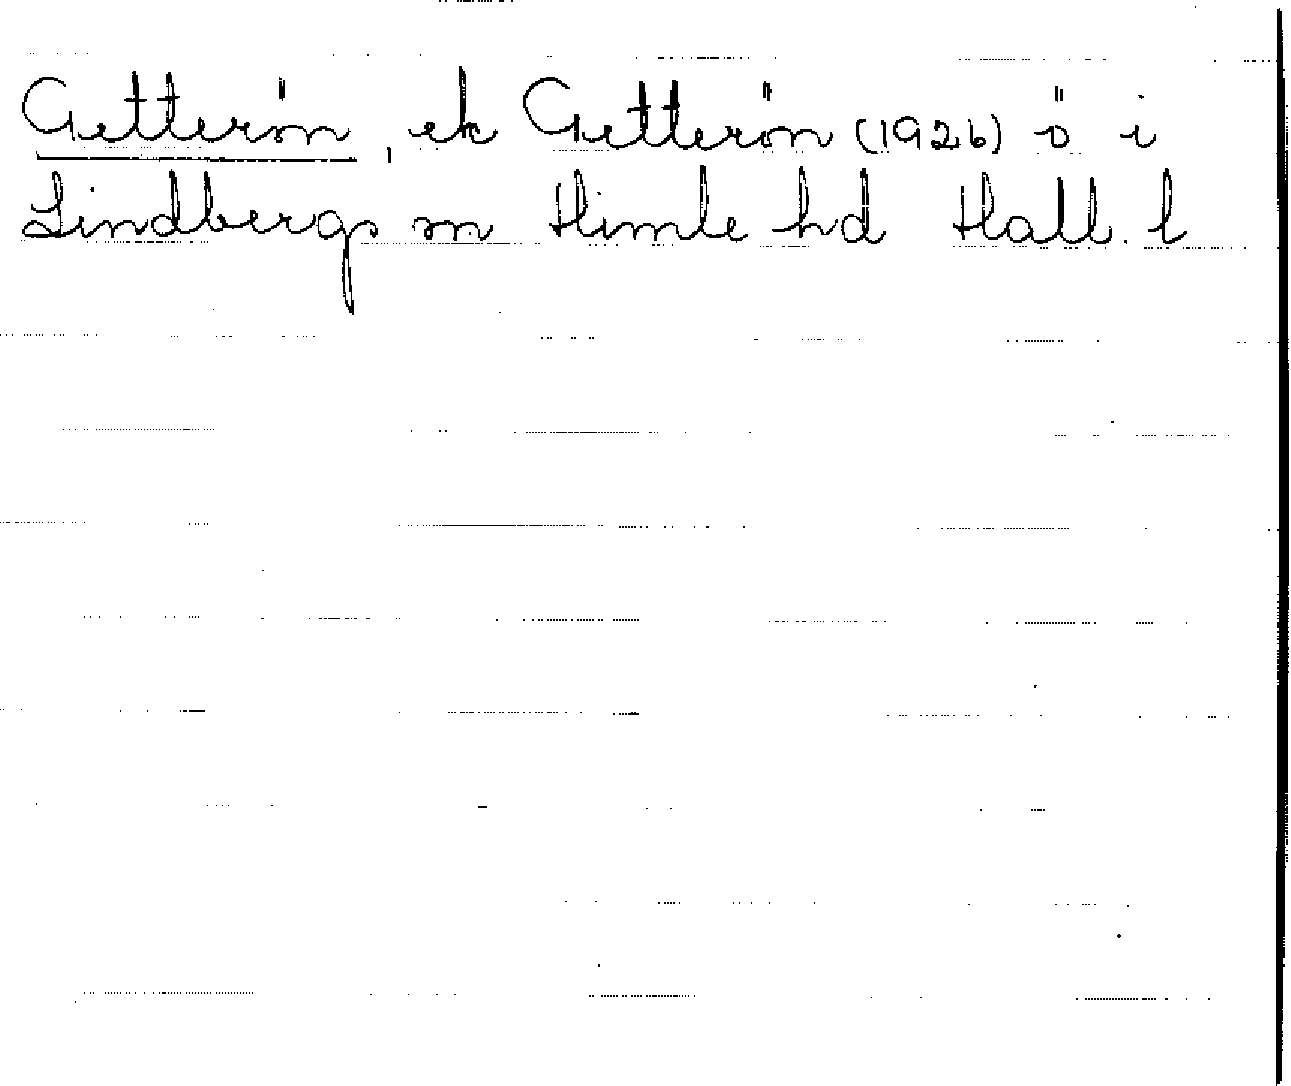 Getterön, ek Getterön (1926) ö i
Lindbergs sn Himle hd Hall. l